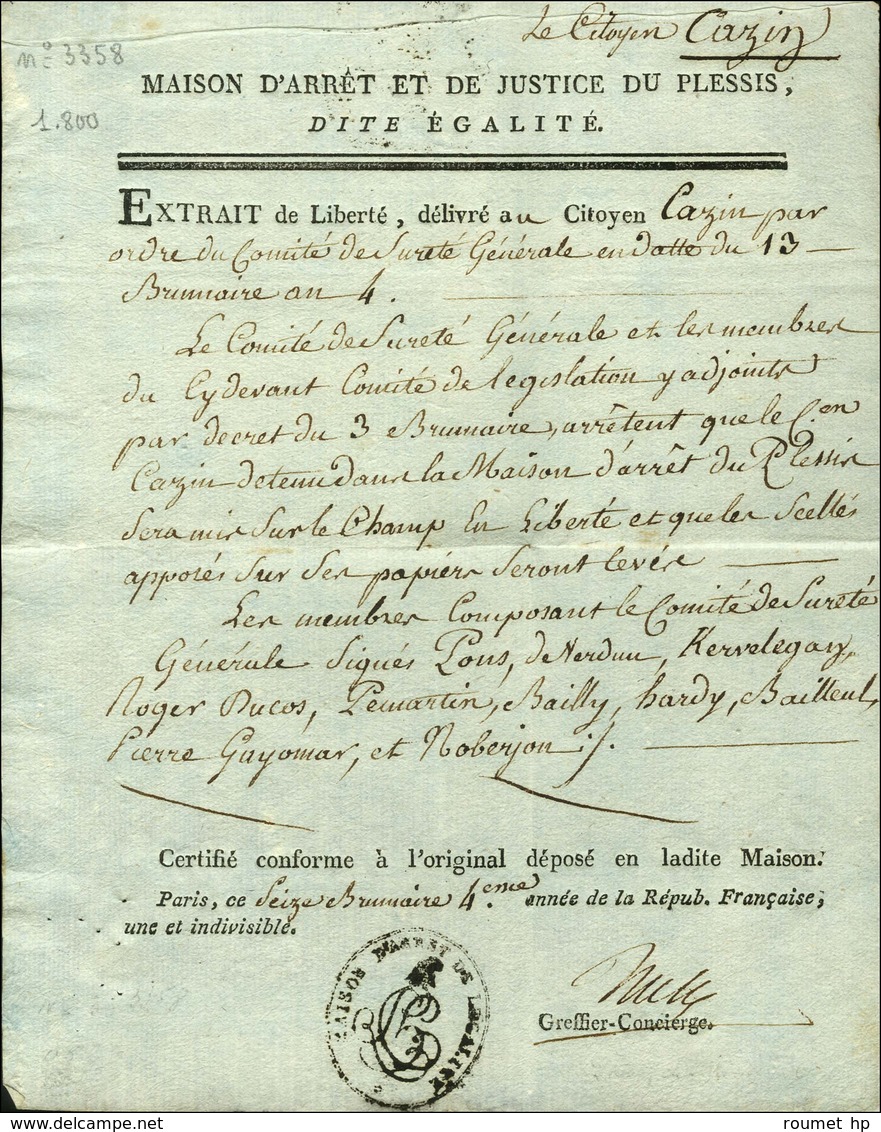 Le Citoyen Cazin
n.° 3358
1.800
MAISON D'ARRÊT ET DE JUSTICE DU PLESSIS,
DITE ÉGALITÉ.
EXTRAIT de Liberté, délivré au Citoyen Cazin par
ordre du Comité de Sureté Générale en datte du 13
Brumaire an 4.
Le Comité de Sureté Générale et les membres
du Cydevant Comité de legislation y adjoints
par decret du 3 Brumaire, arrêtent que le C.en
Cazin detenu dans la Maison d'arrêt du Plessis
Sera mis Sur le Champ En Liberté et que les Scellés
apposés Sur Ses papiers Seront levés
Les membres Composant le Comité de Sureté
Générale Signés Pons, de Verdun, Kervelegan,
Roger Ducos, Pemartin, Bailly, hardy, Bailleul,
Pierre Guyomar, et Noberjon ./.
Certifié conforme à l'original déposé en ladite Maison.
Paris, ce Seize Brumaire 4.eme année de la Répub. Française,
une et indivisible.
MAISON D'ARRET DE LEGALITÉ
Greffier-Concierge.
roumet hp